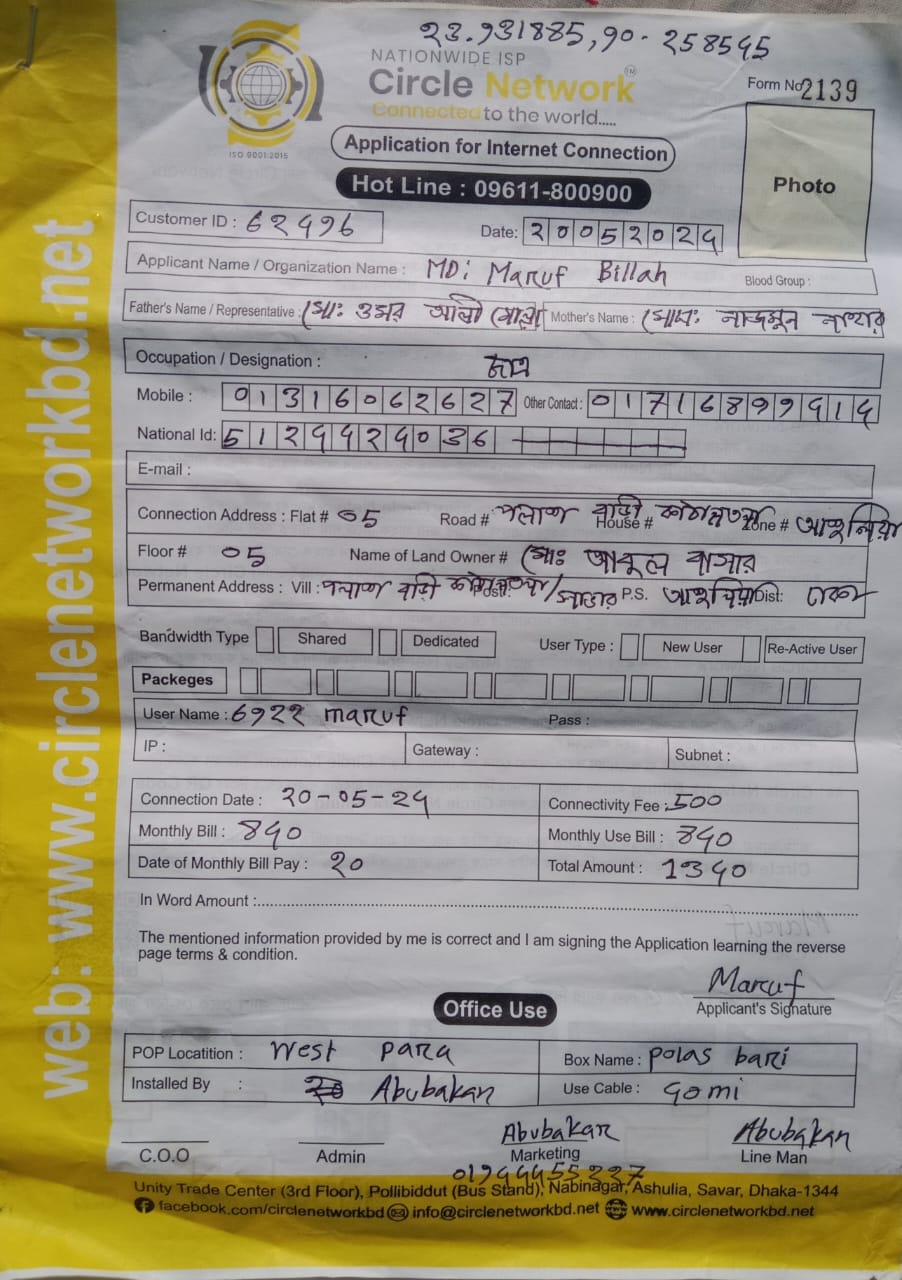 23.931885, 90.258545
NATIONWIDE ISP
Circle Network TM
Connected to the world.....
ISO 9001:2015
Form No 2139
Application for Internet Connection
Photo
Hot Line : 09611-800900
Customer ID : 62496
Date: 20052024
Applicant Name / Organization Name : MD: Maruf Billah Blood Group :
Father's Name / Representative : মোঃ ওমর আলী মোল্লা Mother's Name : মোসাঃ নাজমুন নাহার
Occupation / Designation : ছাত্র
Mobile : 01316062627 Other Contact : 01716899414
National Id: 5129424036
E-mail :
Connection Address : Flat # 05 Road # পলাশ বাড়ী House # Zone # আশুলিয়া
Floor # 05 Name of Land Owner # মোঃ আবুল বাসার
Permanent Address : Vill : পলাশ বাড়ী Post: সাভার P.S. আশুলিয়া Dist: ঢাকা
Bandwidth Type Shared Dedicated User Type : New User Re-Active User
Packeges
User Name : 6922 maruf Pass :
IP : Gateway : Subnet :
Connection Date : 20-05-24 Connectivity Fee : 500
Monthly Bill : 840 Monthly Use Bill : 840
Date of Monthly Bill Pay : 20 Total Amount : 1340
In Word Amount :
The mentioned information provided by me is correct and I am signing the Application learning the reverse
page terms & condition.
Maruf
Applicant's Signature
Office Use
POP Locatition : West para Box Name : polas bari
Installed By : Abubakar Use Cable : 40mi
Abubakar Abubakar
C.O.O Admin Marketing Line Man
01944455337
Unity Trade Center (3rd Floor), Pollibiddut (Bus Stand), Nabinagar, Ashulia, Savar, Dhaka-1344
facebook.com/circlenetworkbd info@circlenetworkbd.net www.circlenetworkbd.net
web: www.circlenetworkbd.net